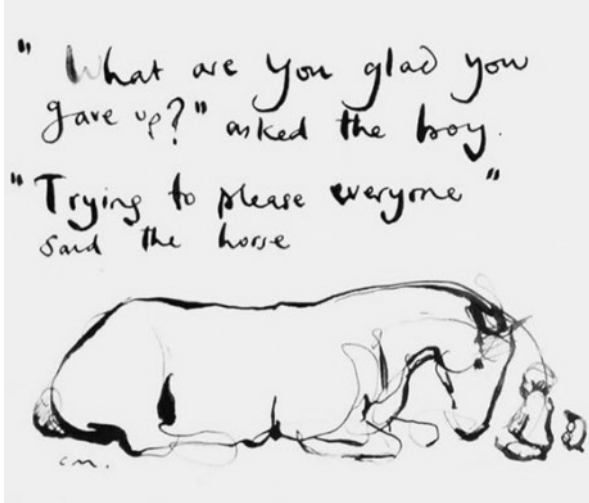 " What are you glad you
gave up?" asked the boy.
"Trying to please everyone"
said the horse
cm.